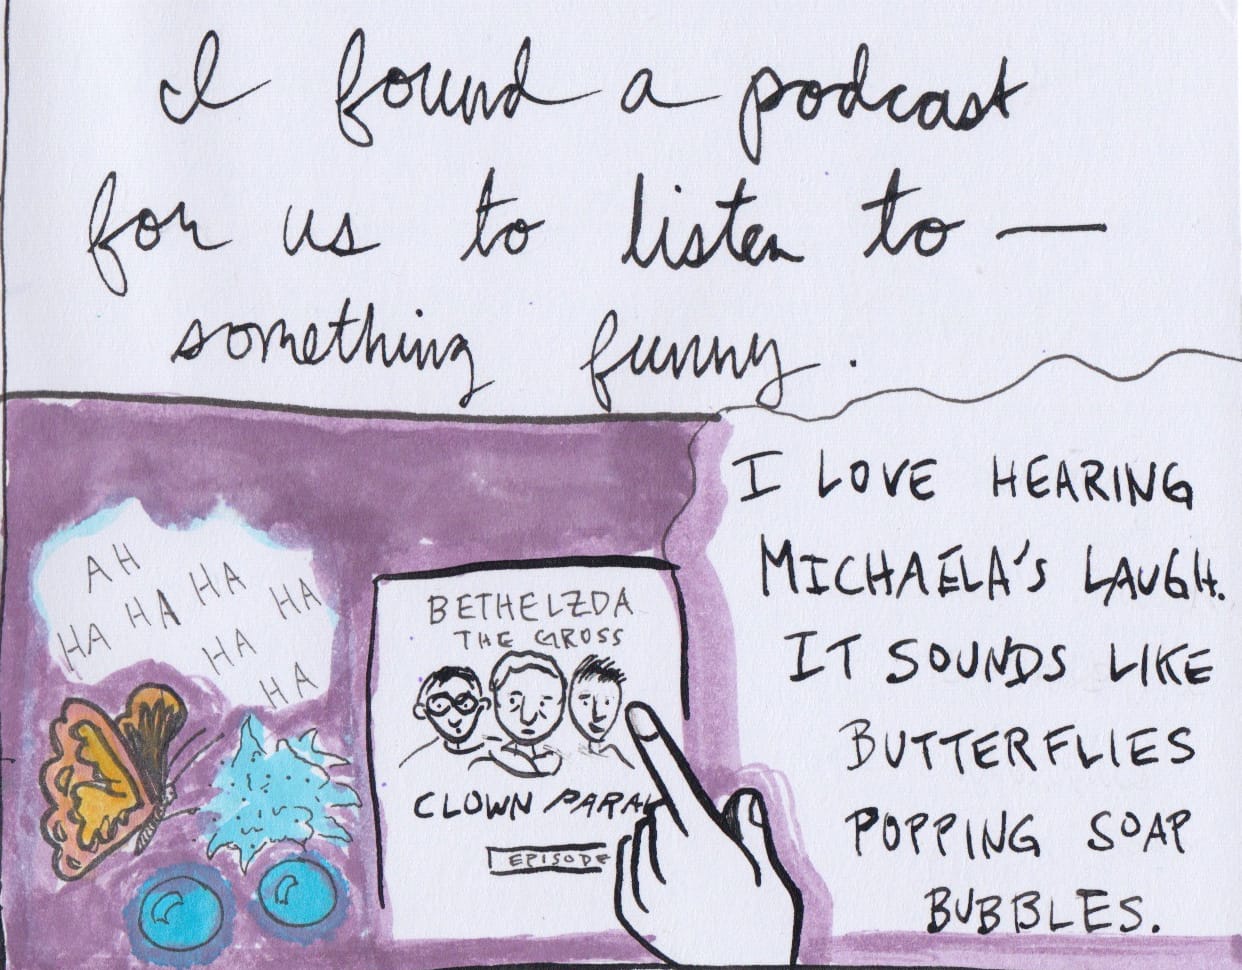 I found a podcast
for us to listen to —
something funny.
I LOVE HEARING
MICHAELA'S LAUGH.
IT SOUNDS LIKE
BUTTERFLIES
POPPING SOAP
BUBBLES.
AH
HA HA HA HA
HA
HA
BETHELZDA
THE GROSS
CLOWN PARA
EPISODE